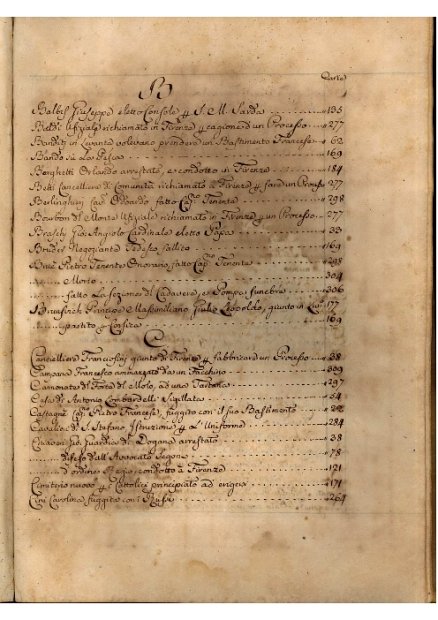 B
Balbis Giuseppe eletto Console p S. M. Sarda 135
Baldi Ufiziale richiamato in Firenze p cagione d'un Processo 277
Banditi in Levante volevano prendere un Bastimento Francese 62
Bando su la Pesca 169
Borghetti Orlando arrestato, e condotto in Firenze 184
Betti Cancelliere di Comunità richiamato a Firenze p fare un Processo 277
Berlinghieri Cap. Odoardo fatto Cap. Tenente 298
Bourbon del Monte Ufiziale richiamato in Firenze p un Processo 277
Braschi Gio: Angiolo Cardinale eletto Papa 33
Bruder Negoziante Tedesco fallito 164
Bruè Pietro Tenente Onorario, fatto Cap. Tenente 298
Morto 304
fatto la sezione del Cadavere, e Pompa funebre 306
Principe Massimiliano Giulio Leopoldo, giunto in 177
spartito p Corsica 169
C
Cancelliere Franciosini giunto di Firenze p fabbricare un Processo 38
Campana Francesco ammazzato da un Facchino 309
Cannonata del Forte del Molo, ad una Tartana 297
Casa di Antonio Lombardelli Sigillata 54
Castagnè Cap. Pietro Francese, fuggito con il suo Bastimento 22
Cavalier di S. Stefano, Istruzioni p l'Uniforme 284
Guardia di Dogana arrestato 38
difeso dall'Avvocato 78
d'ordine Regio, condotto a Firenze 121
Cimiterio nuovo p i Cattolici principiato ad erigersi 171
Cini Carolina fuggita con i Russi 264